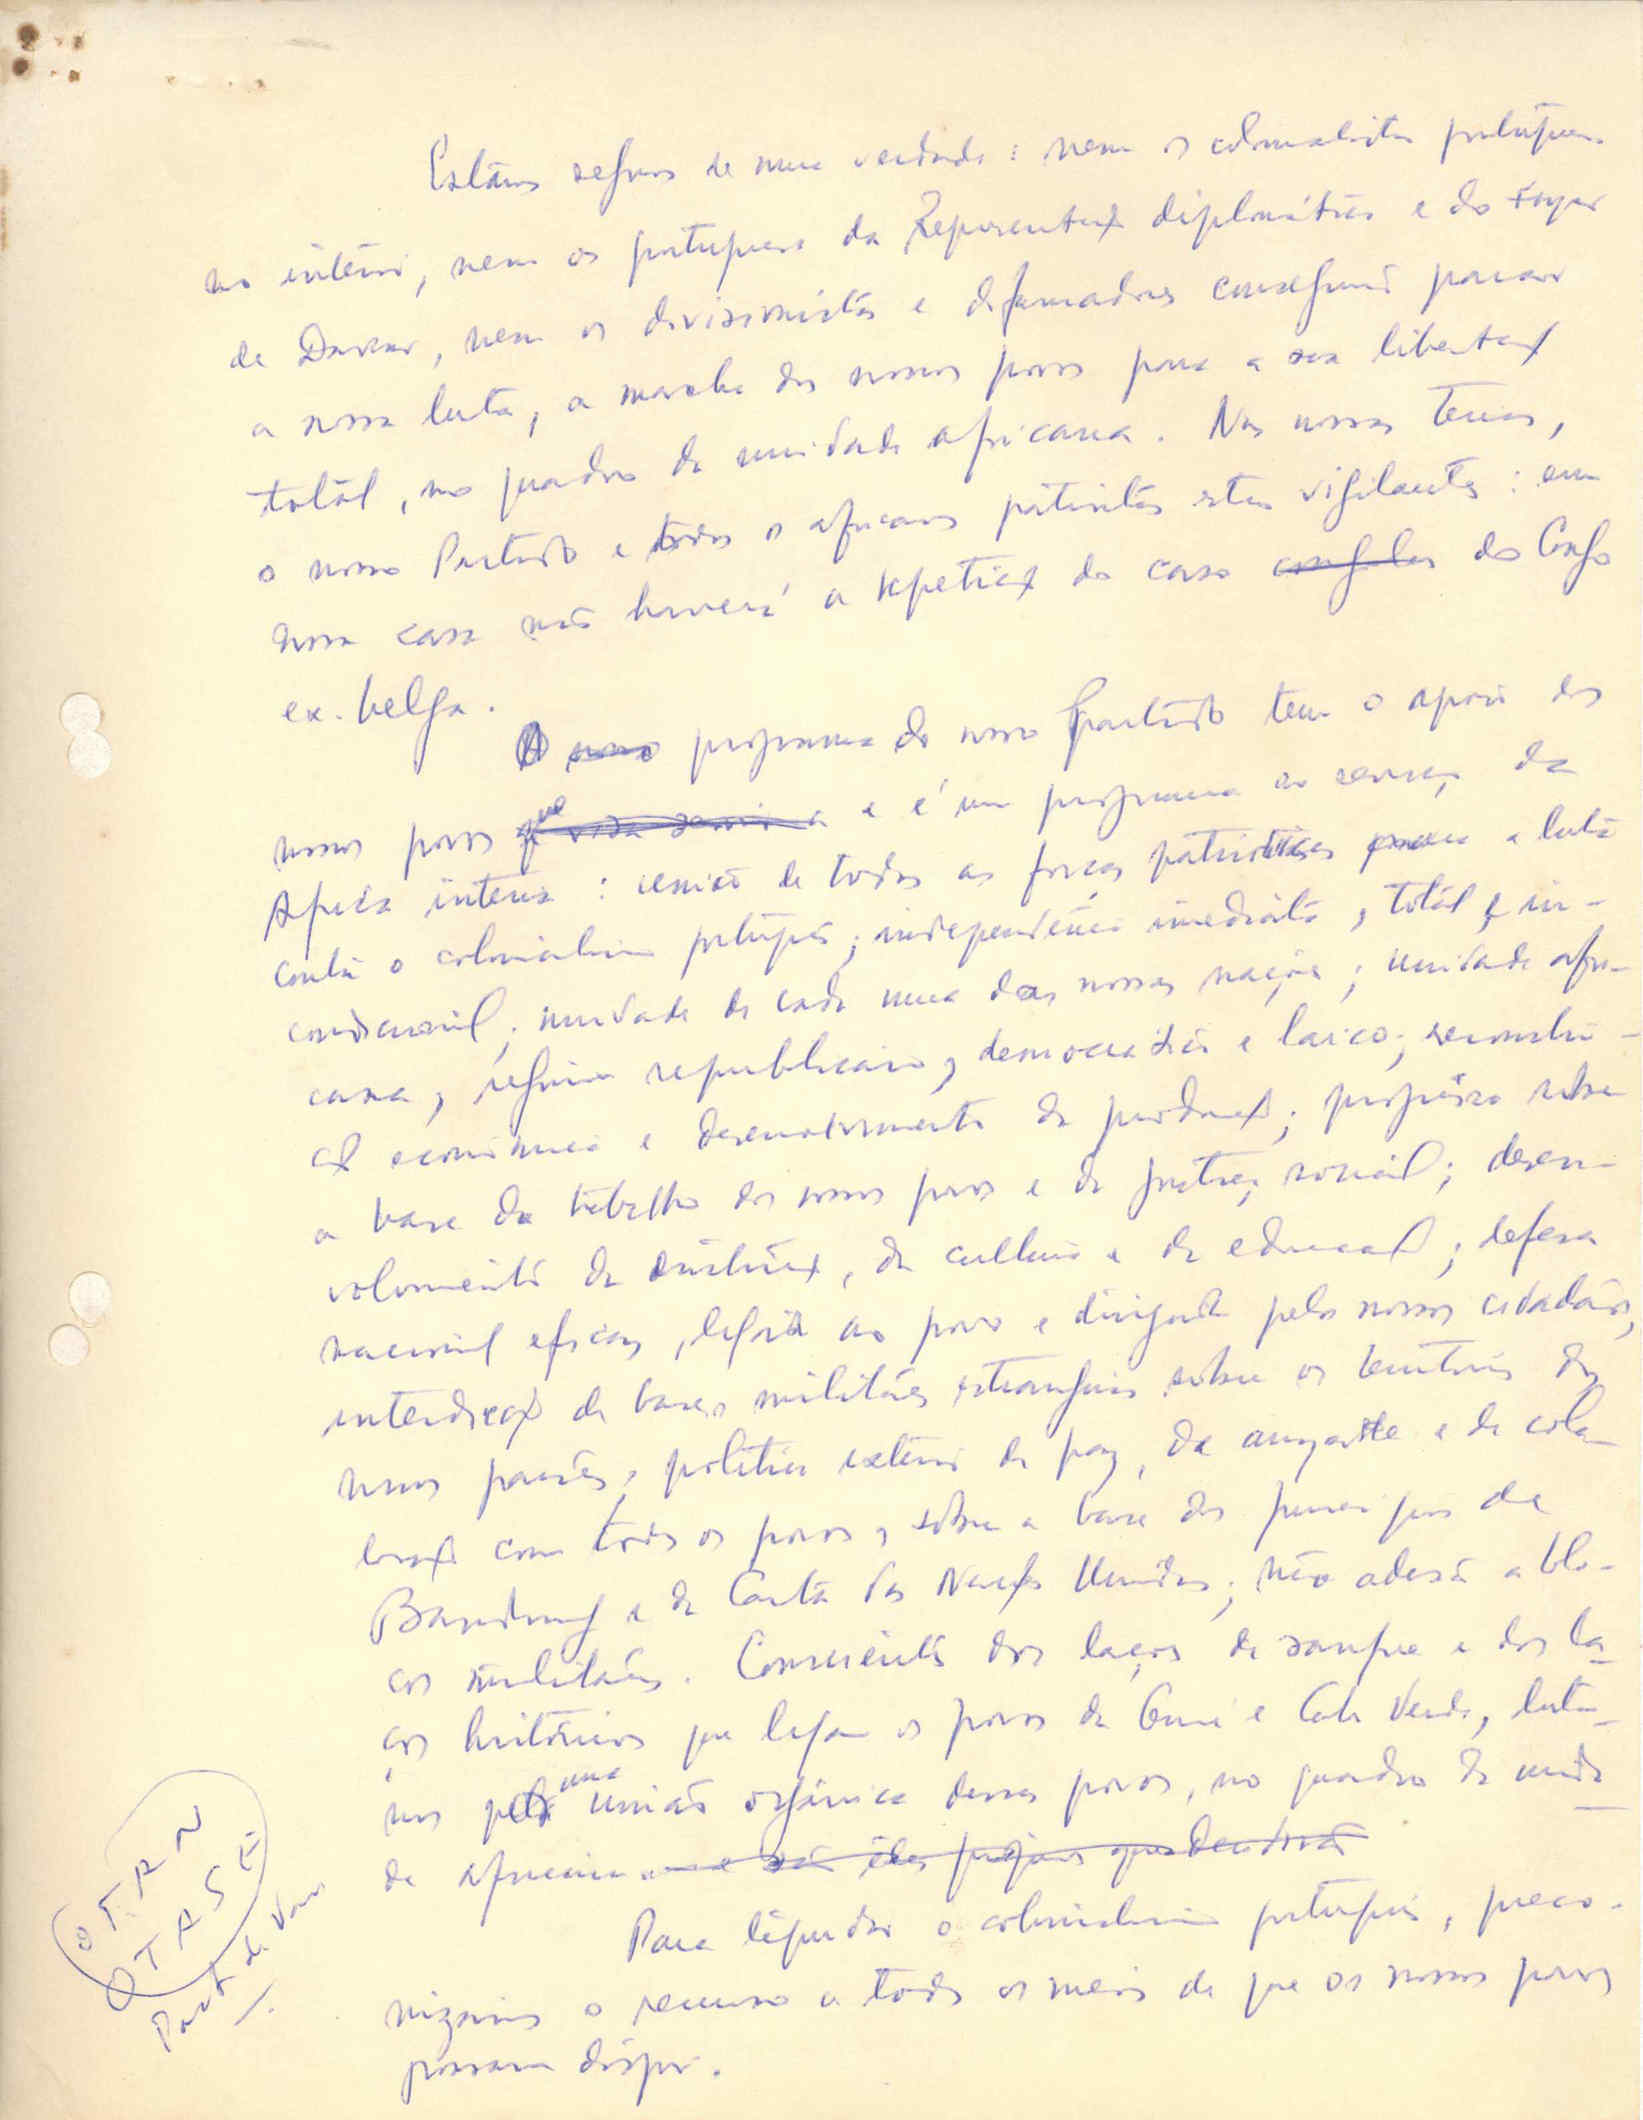 Estamos seguros de uma verdade: nem os colonialistas portugueses
no interior, nem os portugueses da Representação diplomática e do Foyer
de Dakar, nem os divisionistas e difamadores conseguirão parar
a nossa luta, a marcha dos nossos povos para a sua libertação
total, no quadro da unidade africana. Nas nossas terras,
o nosso Partido e todos os africanos patriotas estão vigilantes: em
nossa casa não haverá a repetição do caso congoles do Congo
ex-belga.
O nosso programa do nosso Partido tem o apoio dos
nossos povos que e é um programa ao serviço da
África inteira: união de todas as forças patrióticas para a luta
contra o colonialismo português; independência imediata, total e in-
condicional; unidade de cada uma das nossas nações; unidade afri-
cana, regime republicano, democrático e laico; reconstru-
ção económica e desenvolvimento da produção; progresso sobre
a base do trabalho dos nossos povos e da justiça social; desen-
volvimento da instrução, da cultura e da educação; defesa
nacional eficaz, ligada ao povo e dirigida pelos nossos cidadãos,
interdição de bases militares estrangeiras sobre os territórios dos
nossos países, política externa de paz, de amizade e de cola-
boração com todos os povos, sobre a base dos princípios de
Bandung e da Carta das Nações Unidas; não adesão a blo-
cos militares. Conscientes dos laços de sangue e dos la-
ços históricos que ligam os povos da Guiné e Cabo Verde, luta-
mos pela uma união orgânica desses povos, no quadro da unida-
de africana.
Para liquidar o colonialismo português, preco-
nizamos o recurso a todos os meios de que os nossos povos
possam dispor.
OTAN
OTASE
Pact de Vars